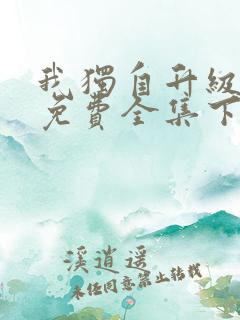 我獨自升級
免費全集下
溪逍遥
未经同意禁止转载